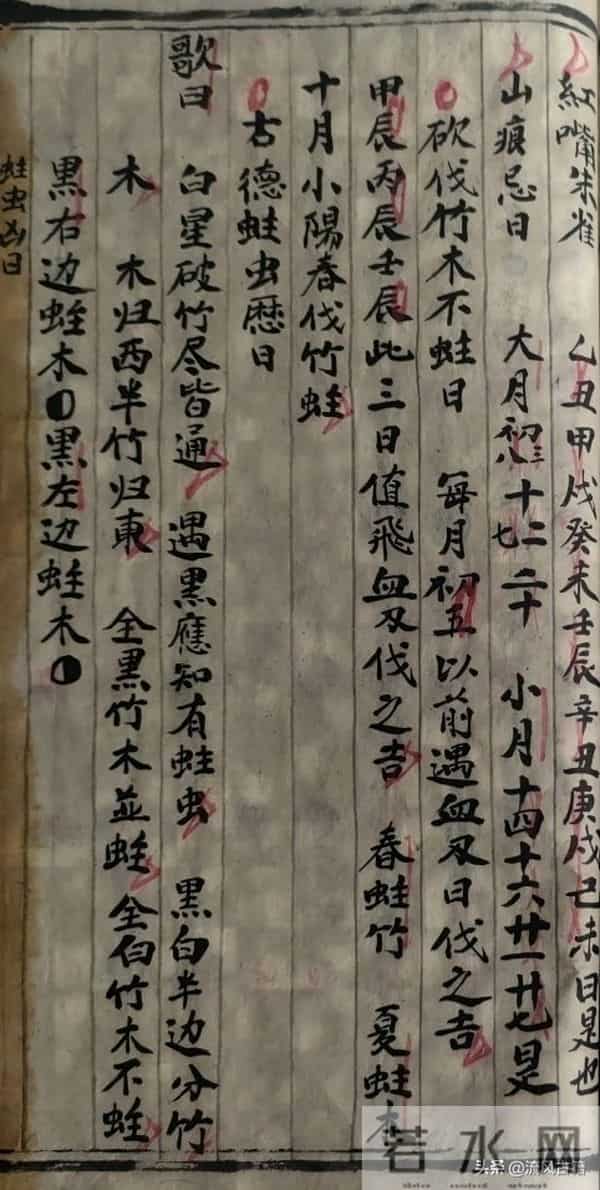 紅嘴朱雀 乙丑甲戌癸未壬辰辛丑庚戌己未日是也
山痕忌日 大月初三初八十二十七二十 小月十四十六廿一廿七是
砍伐竹木不蛀日 每月初五以前遇血刃日伐之吉
甲辰丙辰壬辰此三日值飛血刃伐之吉 春蛀竹 夏蛀木
十月小陽春伐竹蛀
古德蛀虫曆日
歌曰 白星破竹尽皆通 遇黒應知有蛀虫 黒白半边分竹
木 木归西半竹归東 全黒竹木並蛀 全白竹木不蛀
黒右边蛀木 黒左边蛀木
蛀虫凶日
若水网
头条@流风